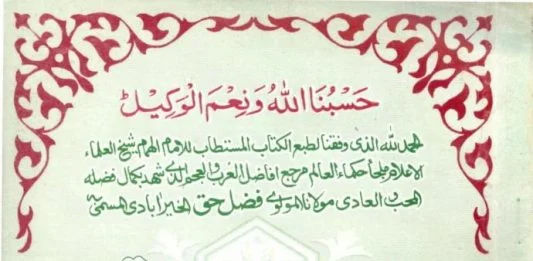 حَسْبُنَا اللّٰهُ وَنِعْمَ الْوَكِيْلُ
الحمد لله الذی وفقنا لطبع الكتاب المستطاب للامام الهمام شیخ العلماء
الاعلام ملجأ حکماء العالم مرجع افاضل العرب والعجم الذی شهد بکمال فضله
المحب و العادی مولانا المولوی فضل حق الخیرآبادی المسمی به